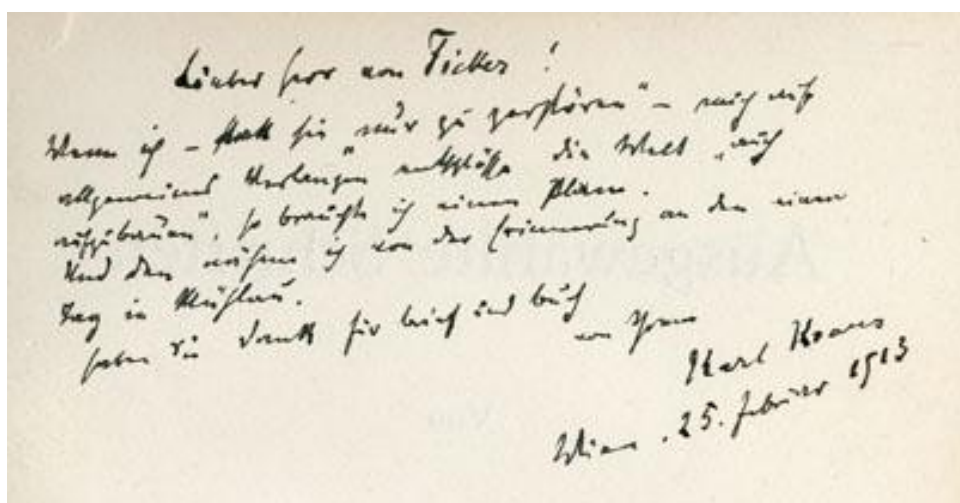 Lieber Herr von Ficker!
Wenn ich – statt sie „nur zu zerstören“ – mich auf
allgemeines Verlangen entschlösse die Welt „auch
aufzubauen“, so brauchte ich einen Plan.
Und den nähme ich von der Erinnerung an den einen
Tag in Mühlau.
Haben Sie Dank für Brief und Buch
von Ihrem
Karl Kraus
Wien, 25. Februar 1913